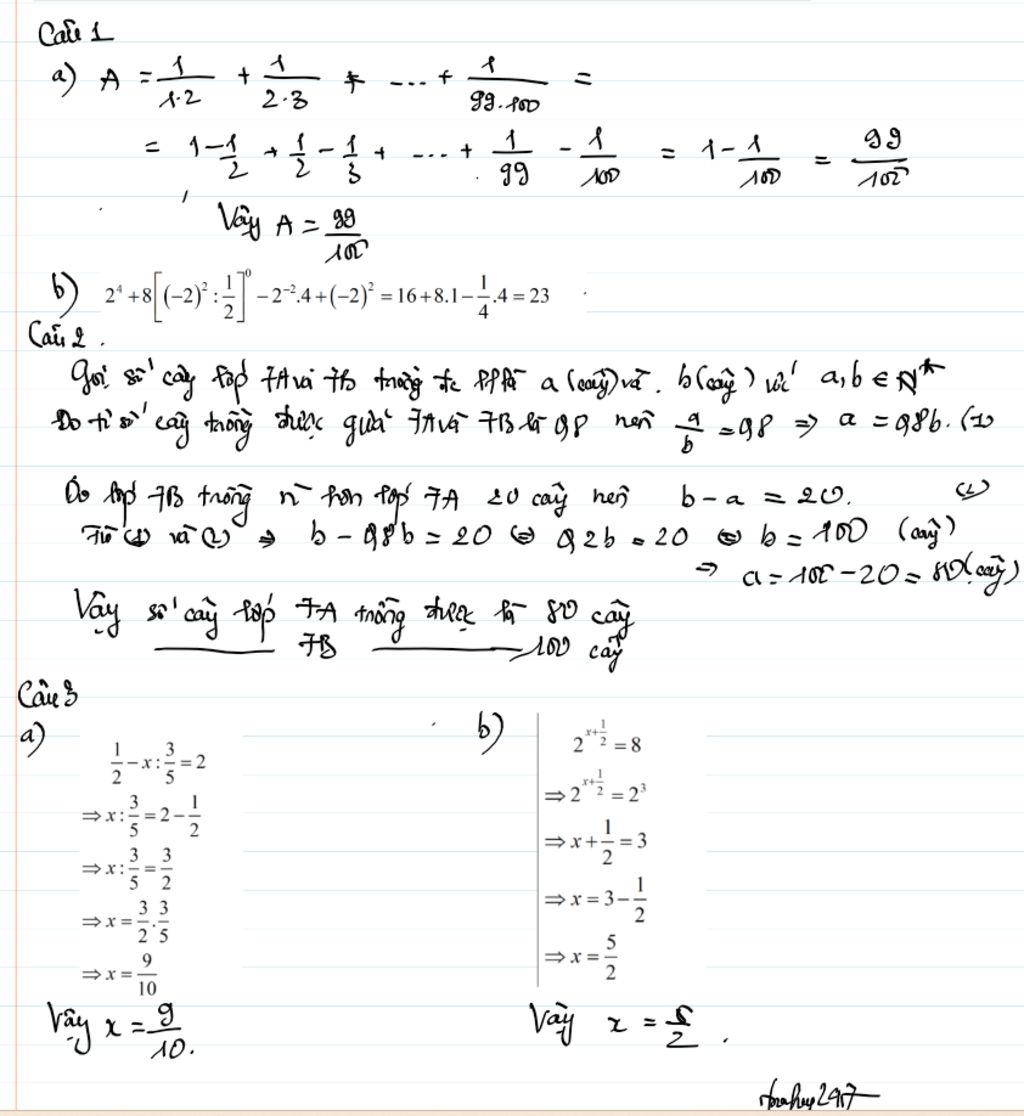 Câu 1
a) A = 1/1.2 + 1/2.3 + ... + 1/99.100 =
= 1 - 1/2 + 1/2 - 1/3 + ... + 1/99 - 1/100 = 1 - 1/100 = 99/100
Vậy A = 99/100
b) 2^4 + 8[(-2)^2 : 1/2]^0 - 2^-2.4 + (-2)^2 = 16 + 8.1 - 1/4.4 = 23
Câu 2.
Gọi số cây lớp 7A và 7B trồng đc là a (cây) và b (cây) với a, b ∈ N*
Do tỉ số cây trồng được giữa 7A và 7B là 0,8 nên a/b = 0,8 ⇒ a = 0,8b. (1)
Do lớp 7B trồng n~ hơn lớp 7A 20 cây nên b - a = 20. (2)
Từ (1) và (2) ⇒ b - 0,8b = 20 ⇔ 0,2b = 20 ⇔ b = 100 (cây)
⇒ a = 100 - 20 = 80 (cây)
Vậy số cây lớp 7A trồng được là 80 cây
7B 100 cây
Câu 3
a)
1/2 - x : 3/5 = 2
⇒ x : 3/5 = 2 - 1/2
⇒ x : 3/5 = 3/2
⇒ x = 3/2 . 3/5
⇒ x = 9/10
Vậy x = 9/10.
b)
2^(x+1/2) = 8
⇒ 2^(x+1/2) = 2^3
⇒ x + 1/2 = 3
⇒ x = 3 - 1/2
⇒ x = 5/2
Vậy x = 5/2.